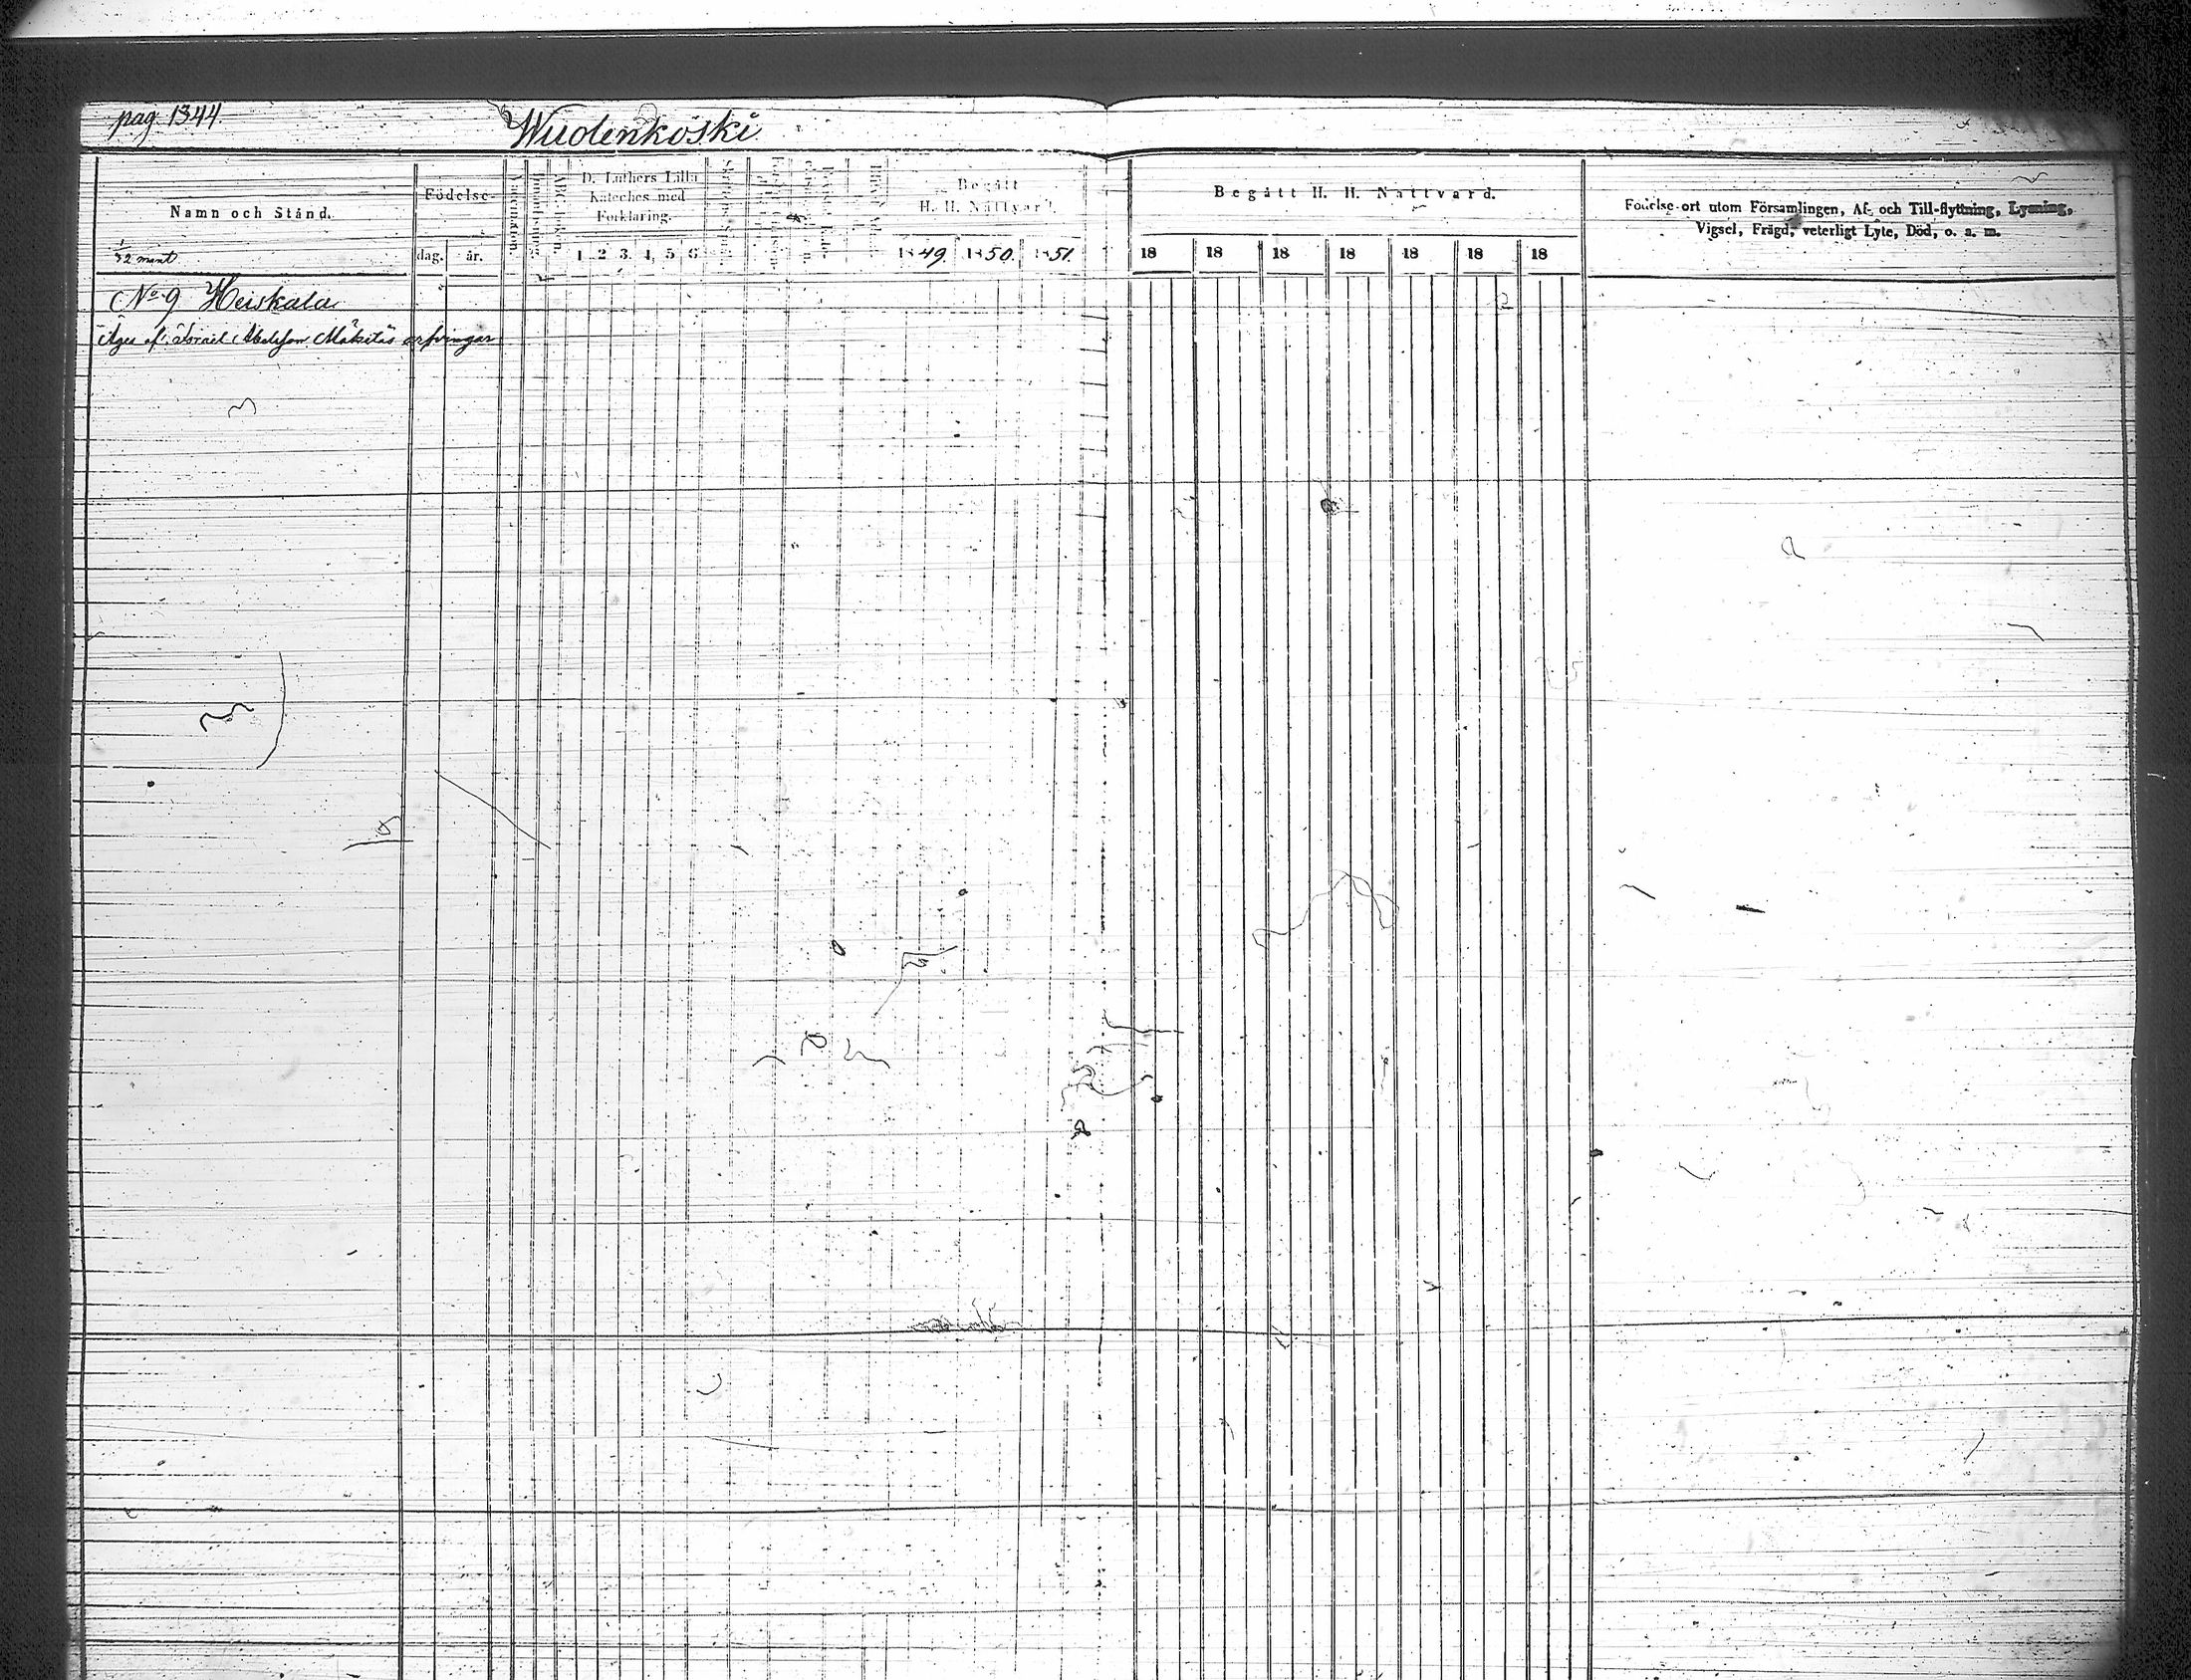 pag. 1344
Wuolenkoski
Namn och Stånd.
1/32 mant
Födelse-
dag. år.
D. Luthers Lilla
Kateches med
Förklaring.
1 2 3. 4. 5 6
Begått
H. H. Nattvard.
1849. 1850. 1851.
Begått H. H. Nattvard.
18 18 18 18 18 18 18
Födelse-ort utom Församlingen, Af- och Till-flyttning, Lysning,
Vigsel, Frägd, veterligt Lyte, Död, o. s. m.
No 9 Heiskala
Äges af Israel Abelsson Mäkitäs arfvingar